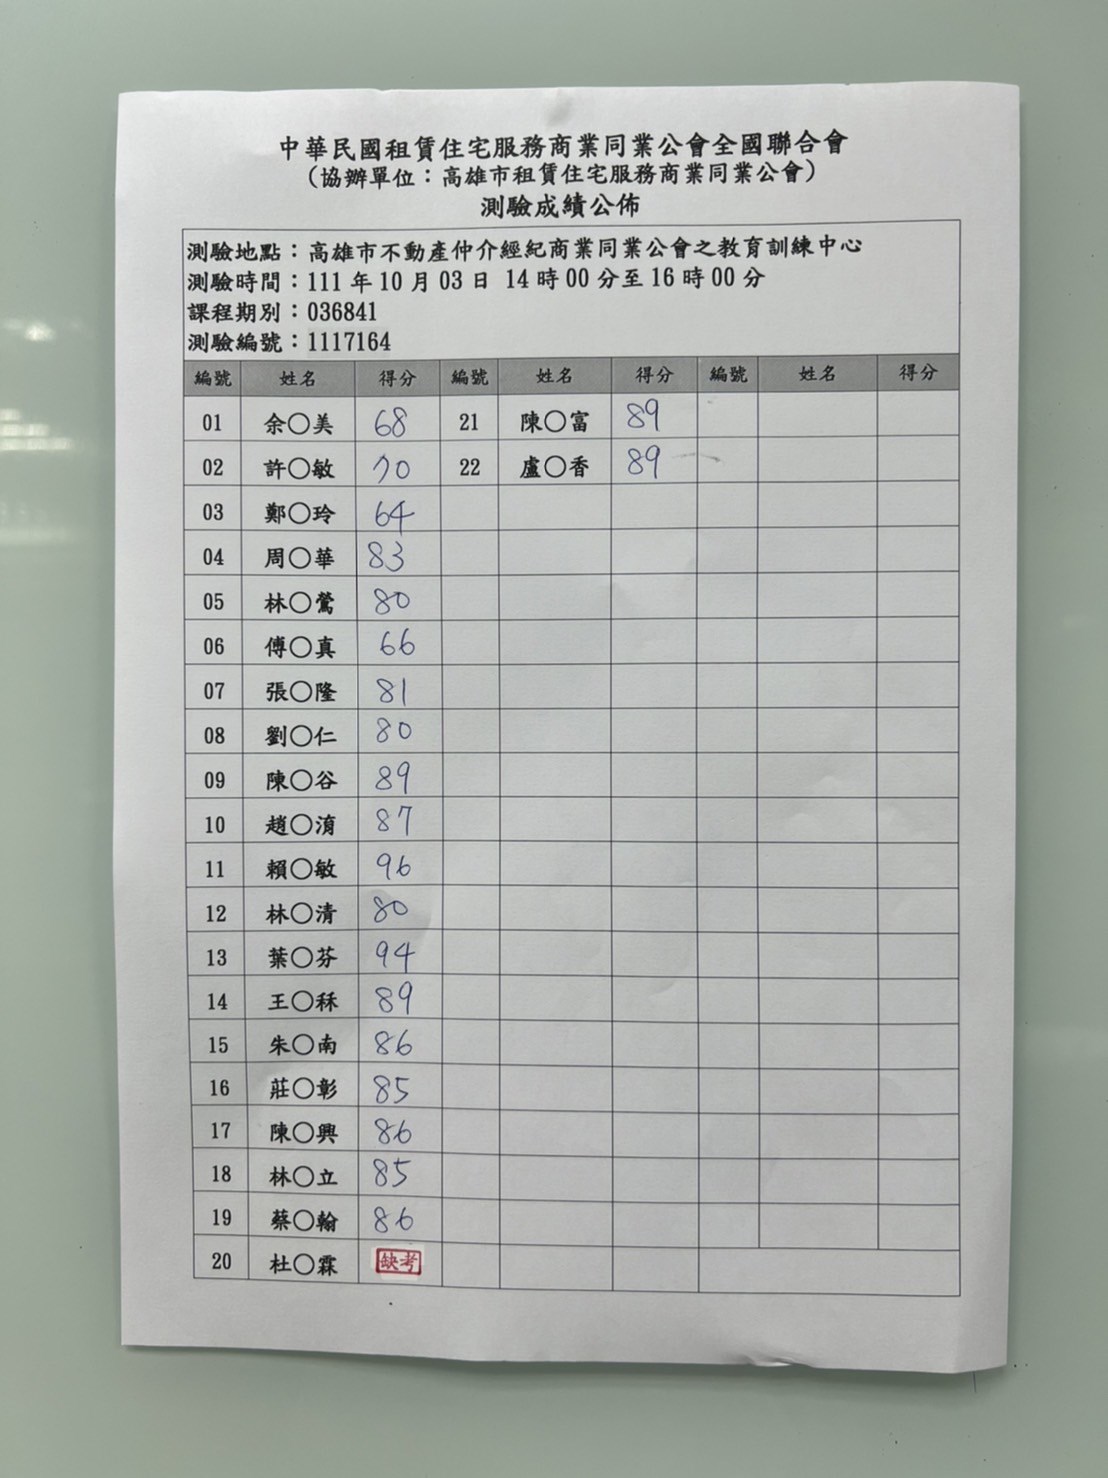 中華民國租賃住宅服務商業同業公會全國聯合會
（協辦單位：高雄市租賃住宅服務商業同業公會）
測驗成績公佈
測驗地點：高雄市不動產仲介經紀商業同業公會之教育訓練中心
測驗時間：111 年 10 月 03 日 14 時 00 分至 16 時 00 分
課程期別：036841
測驗編號：1117164
編號 姓名 得分 編號 姓名 得分 編號 姓名 得分
01 余〇美 68 21 陳〇富 89
02 許〇敏 70 22 盧〇香 89
03 鄭〇玲 64
04 周〇華 83
05 林〇鶯 80
06 傅〇真 66
07 張〇隆 81
08 劉〇仁 80
09 陳〇谷 89
10 趙〇淯 87
11 賴〇敏 96
12 林〇清 80
13 葉〇芬 94
14 王〇秝 89
15 朱〇南 86
16 莊〇彰 85
17 陳〇興 86
18 林〇立 85
19 蔡〇翰 86
20 杜〇霖 缺考